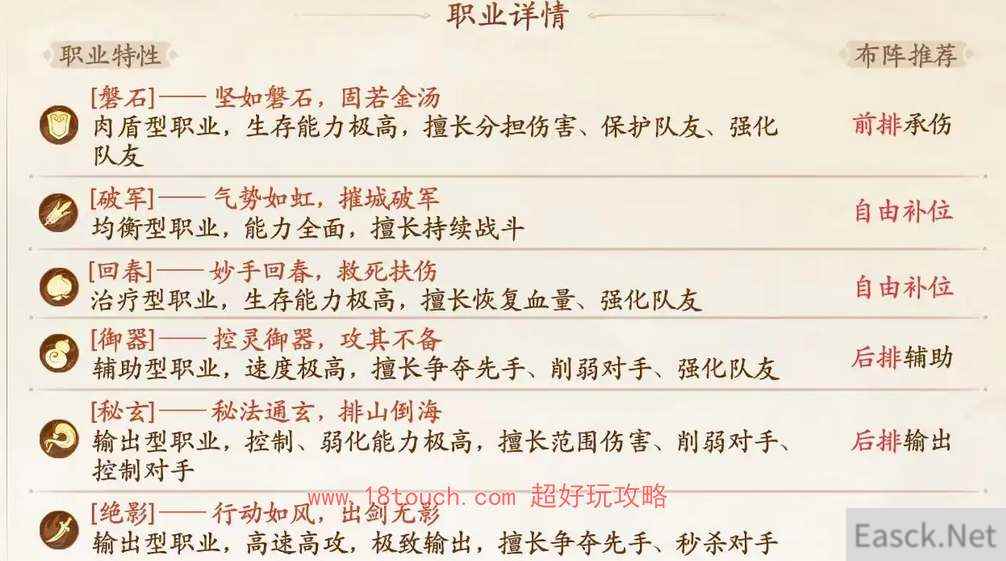 职业详情
职业特性
布阵推荐
[磐石]—— 坚如磐石，固若金汤
肉盾型职业，生存能力极高，擅长分担伤害、保护队友、强化
队友
前排承伤
[破军]—— 气势如虹，摧城破军
均衡型职业，能力全面，擅长持续战斗
自由补位
[回春]—— 妙手回春，救死扶伤
治疗型职业，生存能力极高，擅长恢复血量、强化队友
自由补位
[御器]—— 控灵御器，攻其不备
辅助型职业，速度极高，擅长争夺先手、削弱对手、强化队友
后排辅助
[秘玄]—— 秘法通玄，排山倒海
输出型职业，控制、弱化能力极高，擅长范围伤害、削弱对手、
控制对手
后排输出
www.18touch.com 超好玩攻略
[绝影]—— 行动如风，出剑无影
输出型职业，高速高攻，极致输出，擅长争夺先手、秒杀对手
Easck.Net